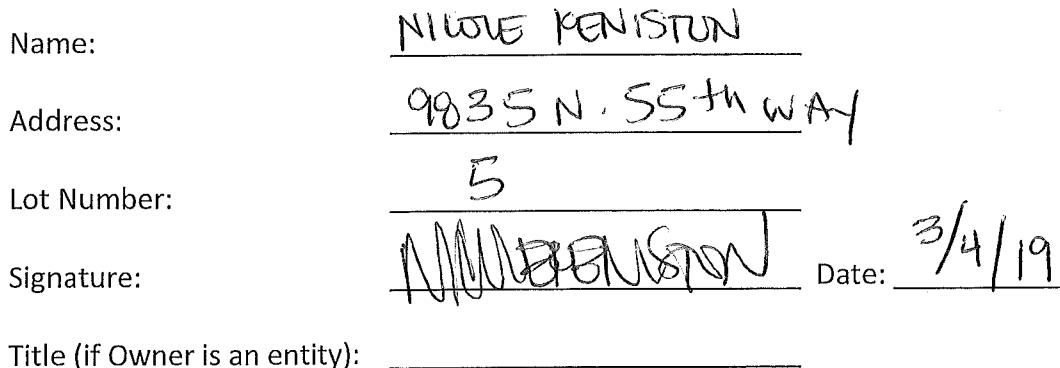 Name: NICOLE KENISTON
Address: 9835 N. 55th WAY
Lot Number: 5
Signature: NICOLE KENISTON Date: 3/4/19
Title (if Owner is an entity):